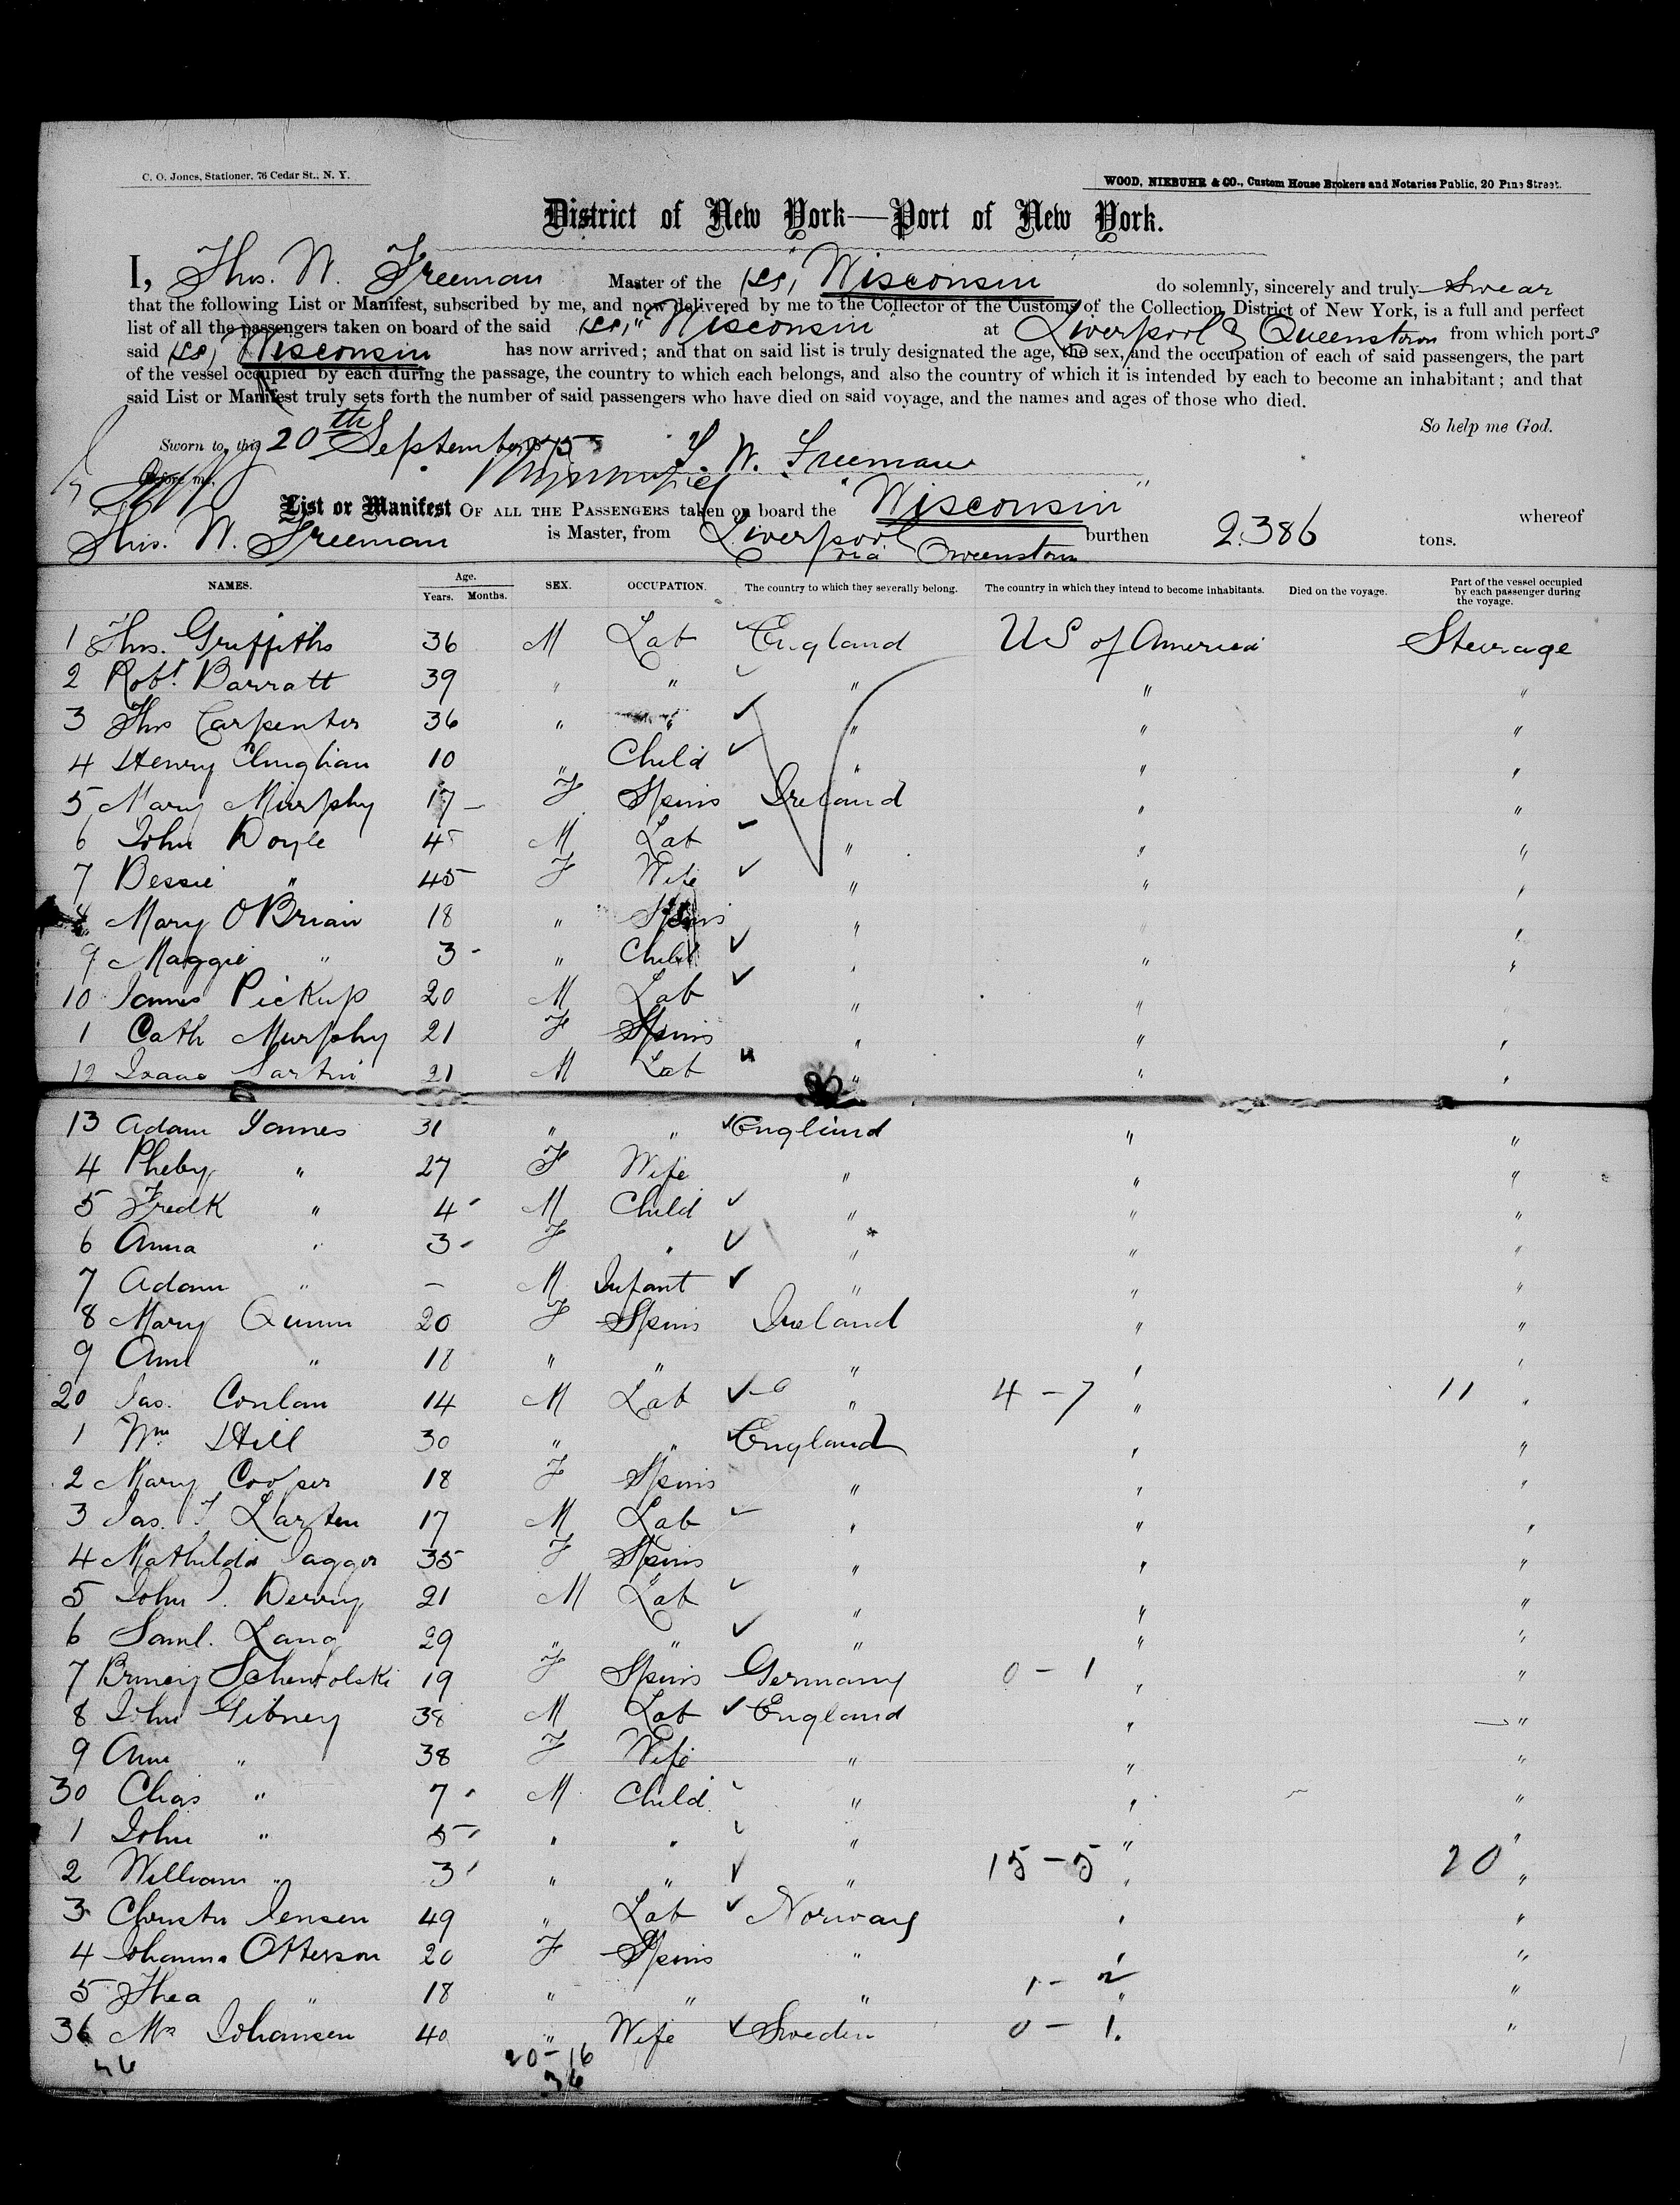 C. O. Jones, Stationer, 76 Cedar St., N. Y.
WOOD, NIEBUHR & CO., Custom House Brokers and Notaries Public, 20 Pine Street.
District of New York—Port of New York.
I, Thos. W. Freeman Master of the (SS) Wisconsin do solemnly, sincerely and truly Swear
that the following List or Manifest, subscribed by me, and now delivered by me to the Collector of the Customs of the Collection District of New York, is a full and perfect
list of all the passengers taken on board of the said (SS) "Wisconsin" at Liverpool & Queenstown from which ports
said (SS) Wisconsin has now arrived; and that on said list is truly designated the age, the sex, and the occupation of each of said passengers, the part
of the vessel occupied by each during the passage, the country to which each belongs, and also the country of which it is intended by each to become an inhabitant; and that
said List or Manifest truly sets forth the number of said passengers who have died on said voyage, and the names and ages of those who died.
So help me God.
Sworn to, this 20th September 1875 T. W. Freeman
Before me,
List or Manifest OF ALL THE PASSENGERS taken on board the "Wisconsin" whereof
Thos. W. Freeman is Master, from Liverpool via Queenstown burthen 2.386 tons.
NAMES. Age. Years. Months. SEX. OCCUPATION. The country to which they severally belong. The country in which they intend to become inhabitants. Died on the voyage. Part of the vessel occupied by each passenger during the voyage.
1 Thos. Griffiths 36 M Lab England US of America Steerage
2 Robt. Barratt 39 " " " " "
3 Thos Carpenter 36 " " " " "
4 Henry 10 " Child " " "
5 Mary Murphy 17 F Spins Ireland " "
6 John Doyle 45 M Lab " " "
7 Bessie " 45 F Wife " " "
8 Mary OBrian 18 " Spins " " "
9 Maggie " 3 " Child " " "
10 James Pickup 20 M Lab " " "
1 Cath Murphy 21 F Spins " " "
12 Isaac Sartin 21 M Lab " " "
13 Adam James 31 " " England " "
4 Pheby " 27 F Wife " " "
5 Fredk " 4 M Child " " "
6 Anna " 3 F " " " "
7 Adam " – M Infant " " "
8 Mary Quinn 20 F Spins Ireland " "
9 Ann " 18 " " " " "
20 Jas. Conlan 14 M Lab " 4 – 7 " 11 "
1 Wm Hill 30 " " England " "
2 Mary Cooper 18 F Spins " " "
3 Jas. T Larten 17 M Lab " " "
4 Mathilda Jagger 35 F Spins " " "
5 John J. Derry 21 M Lab " " "
6 Saml. Lang 29 " " " " "
7 19 F Spins Germany 0 – 1 " "
8 John Gibney 38 M Lab England " "
9 Ann " 38 F Wife " " "
30 Chas " 7 M Child " " "
1 John " 5 " " " " "
2 William " 3 " " " 15 – 5 " 20 "
3 Christn Jensen 49 " Lab Norway " "
4 Johanna Otterson 20 F Spins " " "
5 Thea " 18 " " " 1 – 2 " "
36 Mrs Johansen 40 " Wife Sweden 0 – 1. "
36 20 – 16
36